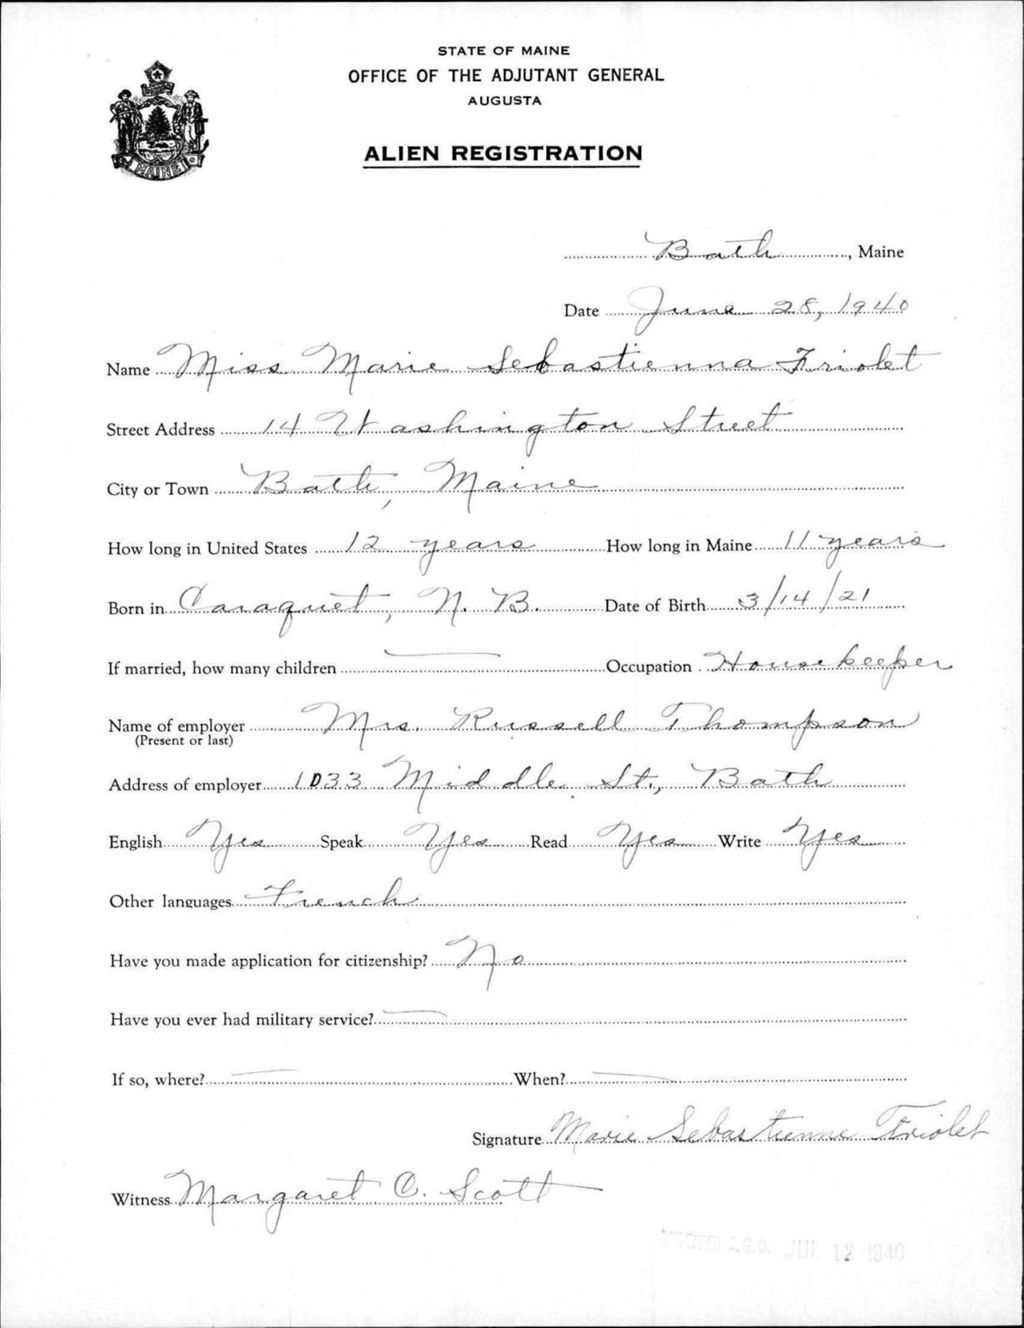 STATE OF MAINE
OFFICE OF THE ADJUTANT GENERAL
AUGUSTA
ALIEN REGISTRATION
MAINE
Bath, Maine
Date June 28, 1940
Name Miss Marie Sebastienna Friolet
Street Address 14 Washington Street
City or Town Bath, Maine
How long in United States 12 years How long in Maine 11 years
Born in Caraquet, N. B. Date of Birth 3/14/21
If married, how many children — Occupation Housekeeper
Name of employer Mrs. Russell Thompson
(Present or last)
Address of employer 1033 Middle St., Bath
English Yes Speak Yes Read Yes Write Yes
Other languages French
Have you made application for citizenship? No
Have you ever had military service? —
If so, where? — When? —
Signature Marie Sebastienne Friolet
Witness Margaret C. Scott
A.G.O. JUL 12 1940